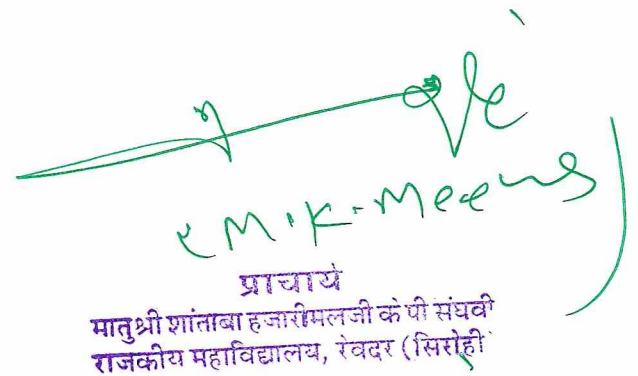 (M.K. Meena)
प्राचार्य
मातुश्री शांताबा हजारीमलजी के पी संघवी
राजकीय महाविद्यालय, रेवदर (सिरोही